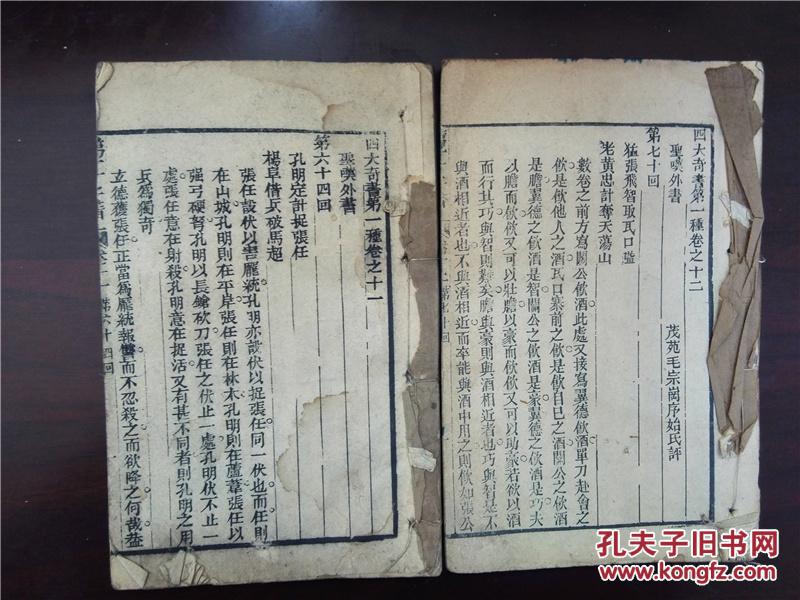 四大奇書第一種卷之十二
聖嘆外書
茂苑毛宗崗序始氏評
第七十回
猛張飛智取瓦口隘
老黃忠計奪天蕩山
數卷之前方寫關公飲酒此處又接寫翼德飲酒單刀赴會之
飲是飲他人之酒瓦口寨前之飲是飲自巳之酒關公之飲酒
是膽翼德之飲酒是智關公之飲酒是豪翼德之飲酒是巧夫
以膽而飲飲又可以壯膽以豪而飲飲又可以助豪若欲以酒
而行其巧與智則難矣膽與豪則與酒相近者也巧與智是不
與酒相近者也不與酒相近而卒能與酒中用之則飲如張公
四大奇書第一種卷之十一
聖嘆外書
第六十四回
孔明定計捉張任
楊阜借兵破馬超
張任設伏以害龐統孔明亦設伏以捉張任同一伏也而任則
在山城孔明則在平岸張任則在林木孔明則在蘆葦張任以
强弓硬弩孔明以長鎗砍刀張任之伏止一處孔明伏不止一
處張任意在射殺孔明意在捉活又有甚不同者則孔明之用
兵爲獨奇
玄德獲張任正當爲龐統報讐而不忍殺之而欲降之何哉益
第六十四回
孔夫子旧书网
www.kongfz.com